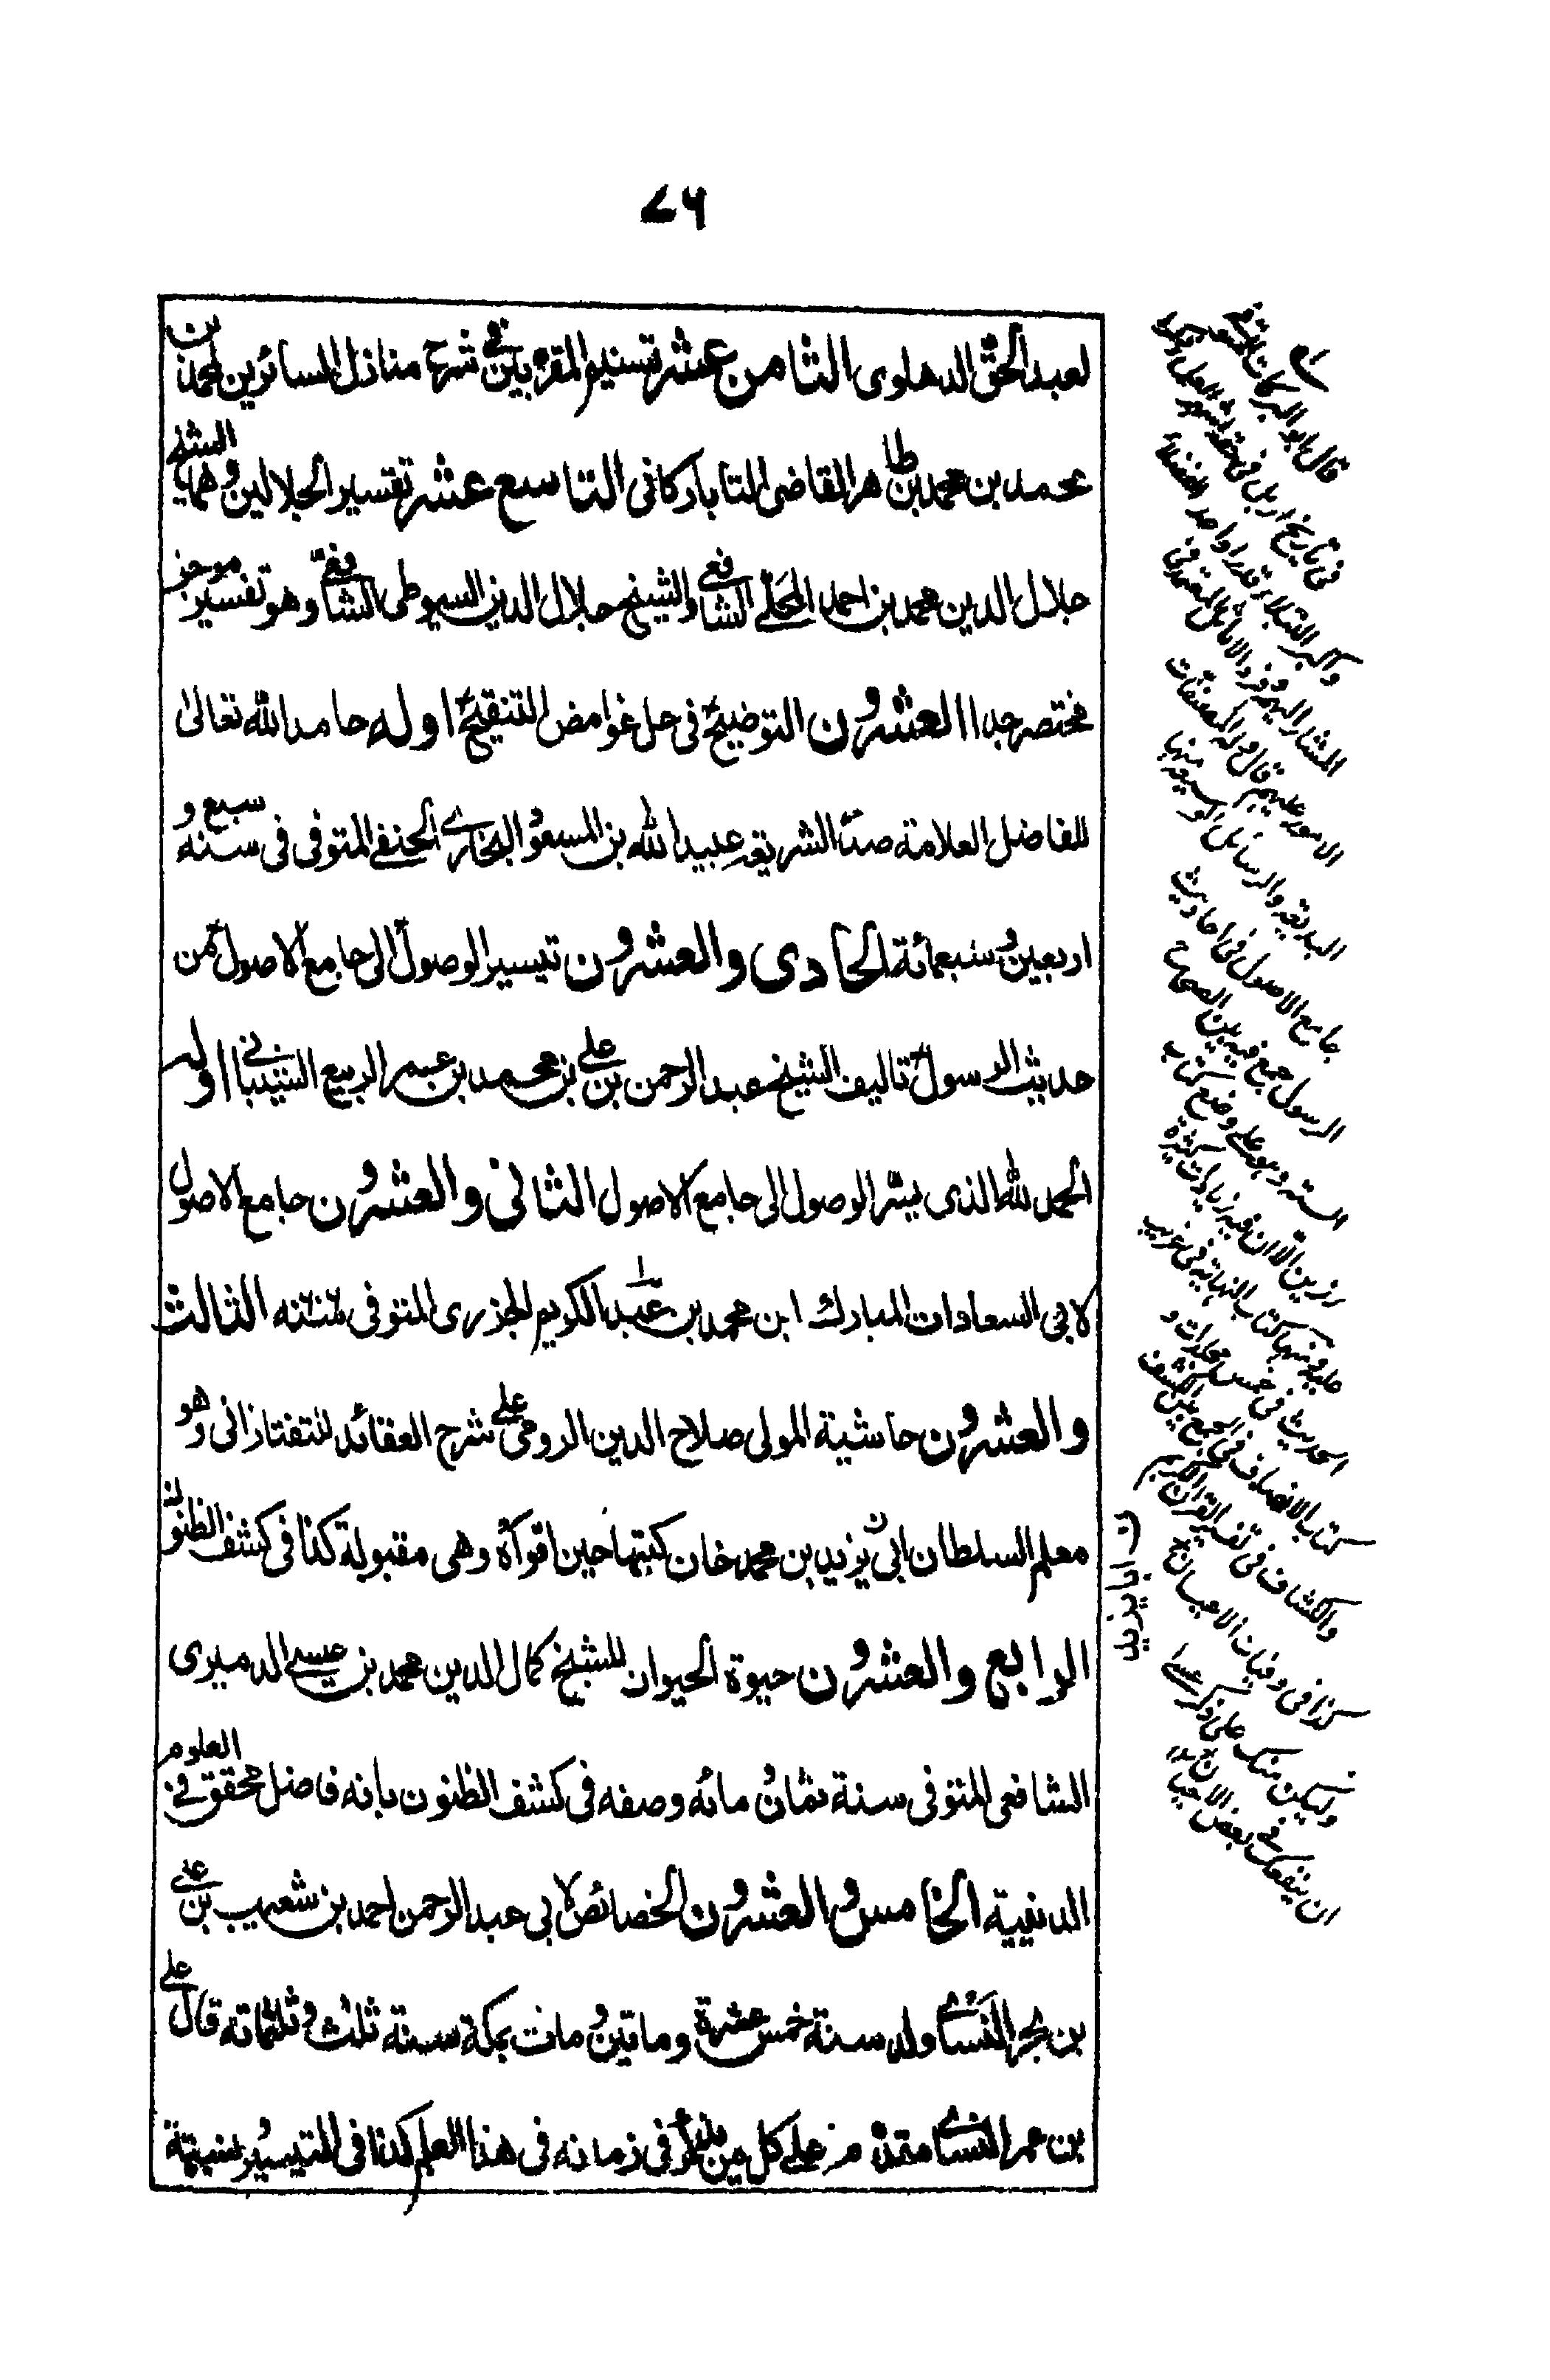 ٧٦
لعبد الحق الدهلوى الثامن عشر تسنيم المقربين فى شرح منازل السائرين لمحمد بن
محمد بن محمد بن طاهر القاضى التابادكانى التاسع عشر تفسير الجلالين وهما الشيخ
جلال الدين محمد بن احمد المحلى الشافعى والشيخ جلال الدين السيوطى الشافعى وهو تفسير موجز
مختصر جدا العشرون التوضيح فى حل غوامض التنقيح اوله حامدا لله تعالى
للفاضل العلامة صدر الشريعة عبيد الله بن المسعود البخارى الحنفى المتوفى فى سنه سبع و
اربعين وسبعمائة الحادى والعشرون تيسير الوصول الى جامع الاصول من
حديث الرسول تاليف الشيخ عبد الرحمن بن على بن محمد بن عمر الربيع الشيبانى اوله
الحمد لله الذى يسر الوصول الى جامع الاصول الثانى والعشرون جامع الاصول
لابى السعادات المبارك ابن محمد بن عبد الكريم الجزرى المتوفى الثالث
والعشرون حاشية المولى صلاح الدين الرومى على شرح العقائد للتفتازانى وهو
معلم السلطان ابى يزيد بن محمد خان كتبها حين اقرأه وهى مقبولة كذا فى كشف الظنون
الرابع والعشرون حيوة الحيوان للشيخ كمال الدين محمد بن عيسى الدميرى
الشافعى المتوفى سنة ثمان مائه وصفه فى كشف الظنون بانه فاضل محقق فى العلوم
الدينية الخامس والعشرون الخصائص لابى عبد الرحمن احمد بن شعيب بن على
بن بحر النسائى ولد سنة خمس عشرة وماتين ومات بمكة سنة ثلث وثلثمائه قال على
بن عمر النسائى مقدم على كل من فى زمانه فى هذا العلم كذا فى التيسير
ن ابا يزيد
قال ابو البركات
فى تاريخ اربل فى حقه
واكبر النبلاء قدرا واحد الفضلاء
المشار اليهم وفرد الاماثل المعتمد فى
الامور عليهم قال وله المصنفات
البديعة والرسائل الوسيعة منها
جامع الاصول فى احاديث
الرسول جمع فيه بين الصحاح
الستة وهو على وضع كتاب
رزين الا ان فيه زيادات كثيرة
عليه ومنها كتاب النهاية فى غريب
الحديث فى خمس مجلدات و
كتاب الانصاف فى الجمع بين الكشف
والكشاف فى تفسير القرآن الكريم
كذا فى وفيات الاعيان
وليكن منك على ذكر عسى
ان ينفعك فى بعض الاحيان